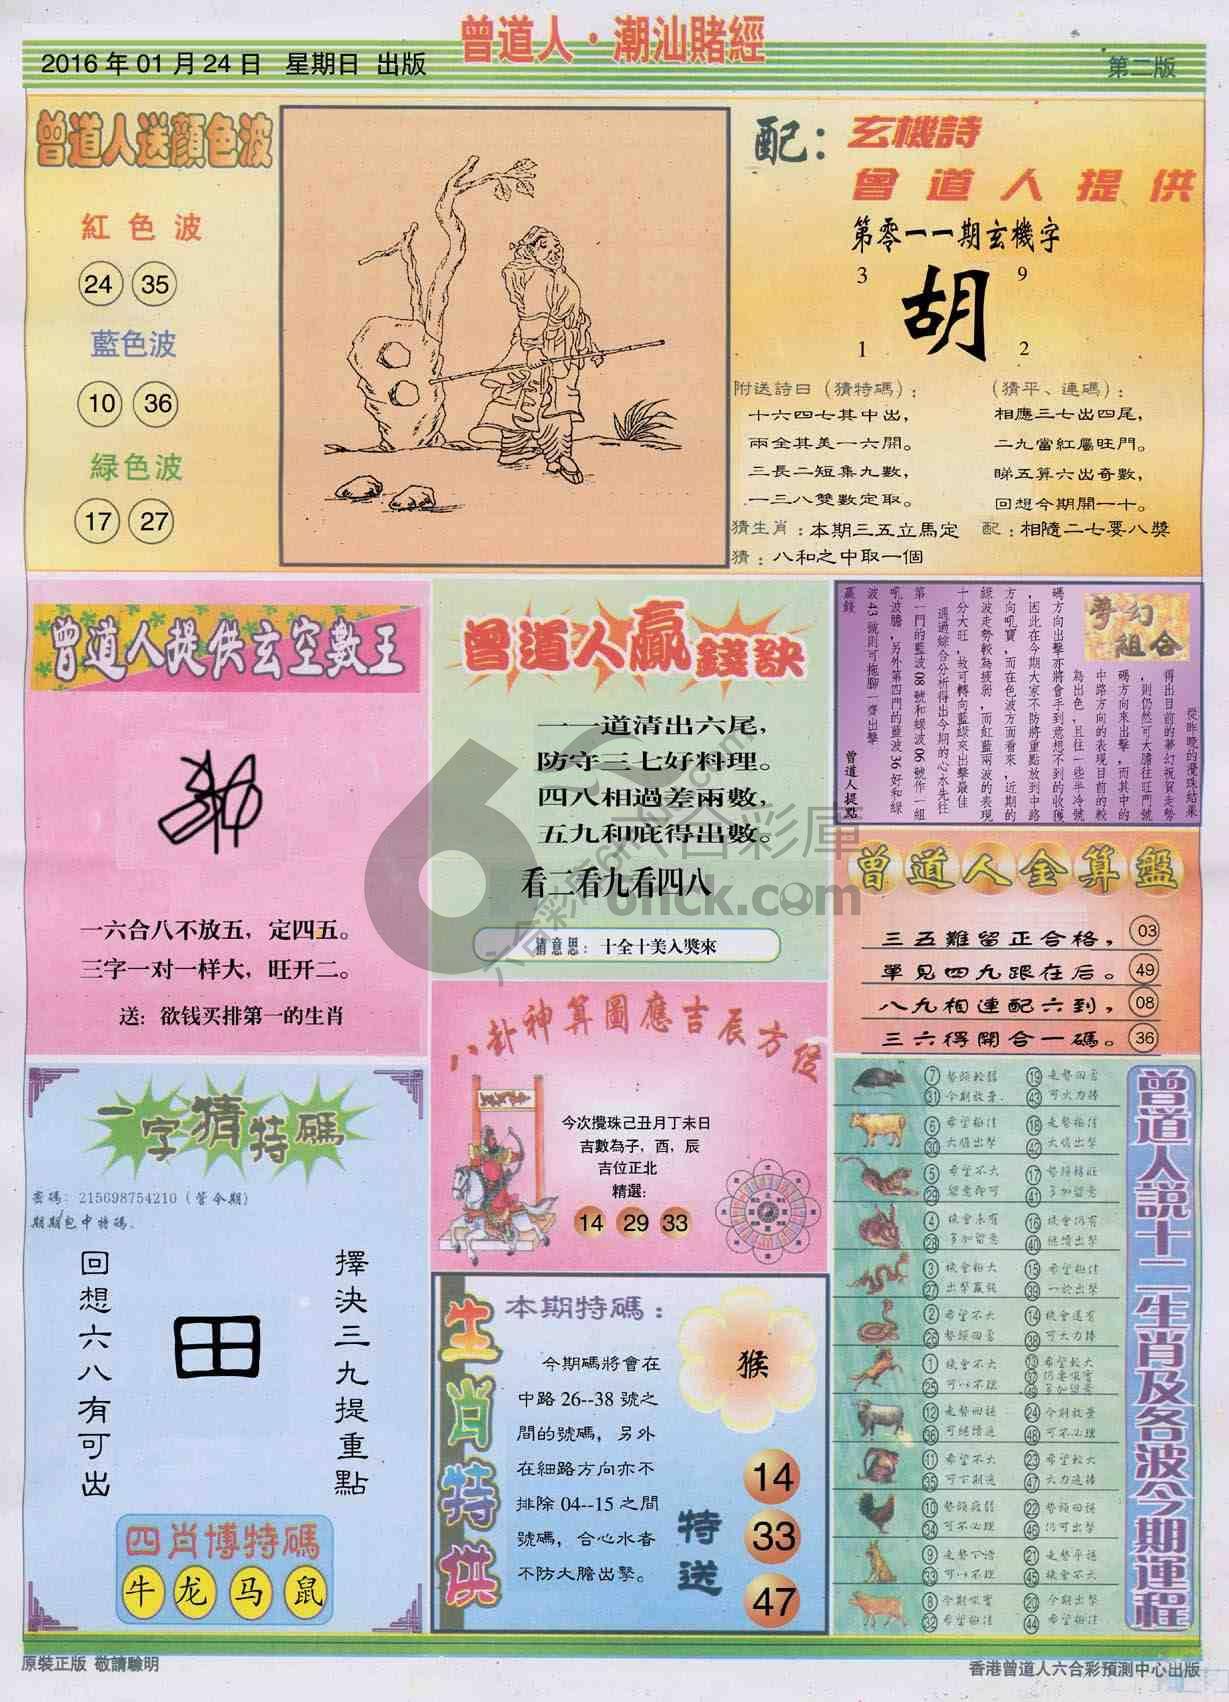 曾道人·潮汕賭經
2016年01月24日 星期日 出版
第二版
曾道人送顏色波
紅色波
24 35
藍色波
10 36
緑色波
17 27
配：
玄機詩
曾道人提供
第零一一期玄機字
3 9
胡
1 2
附送詩曰（猜特碼）：
十六四七其中出，
兩全其美一六開。
三長二短集九數，
一三八雙數定取。
（猜平、連碼）：
相應三七出四尾，
二九當紅屬旺門。
睇五算六出奇數，
回想今期開一十。
猜生肖：本期三五立馬定
配：相隨二七要八獎
猜：八和之中取一個
曾道人提供玄空數王
一六合八不放五，定四五。
三字一对一样大，旺开二。
送：欲钱买排第一的生肖
曾道人贏錢訣
一一道清出六尾，
防守三七好料理。
四八相過差兩數，
五九和底得出數。
看二看九看四八
猜意思：十全十美入獎來
夢幻組合
從昨晚的攪珠結果
得出目前的夢幻祝賀走勢
，則仍然可大膽往旺門號
碼方向來出擊，而其中的
中路方向的表現目前的較
為出色，且往一些半冷號
碼方向出擊亦將會手到意想不到的收獲
，因此在今期大家不防將重點放到中路
方向吼寶，而在色波方面看來，近期的
綠波走勢較為疲弱，而紅藍兩波的表現
十分大旺，故可轉向藍綠來出擊最佳
通過綜合分析得出今期的心水先往
第一門的藍波08號和緑波06號作一組
吼波膽，另外第四門的藍波36好和綠
波43號則可拖腳一齊出擊
贏錢
曾道人提點
曾道人金算盤
三五難留正合格， 03
單見四九跟在后。 49
八九相連配六到， 08
三六得開合一碼。 36
一字猜特碼
密碼：215698754210（管今期）
期期包中特碼．
擇決三九提重點
田
回想六八有可出
四肖博特碼
牛 龙 马 鼠
八卦神算圖應吉辰方位
今次攪珠己丑月丁未日
吉數為子，酉，辰
吉位正北
精選：
14 29 33
生肖特供
本期特碼：
今期碼將會在
中路26--38號之
間的號碼，另外
在細路方向亦不
排除04--15之間
號碼，合心水者
不防大膽出擊。
猴
特送
14
33
47
曾道人說十二生肖及各波今期運程
7 19
31 43
6 18
30 42
5 17
29 41
4 16
28 40
3 15
27 39
2 14
26 38
1 13
25 37
49
12 24
36 48
11 23
35 47
10 22
34 46
9 21
33 45
8 20
32 44
六合彩庫
6hck.com
原裝正版 敬請驗明
香港曾道人六合彩預測中心出版